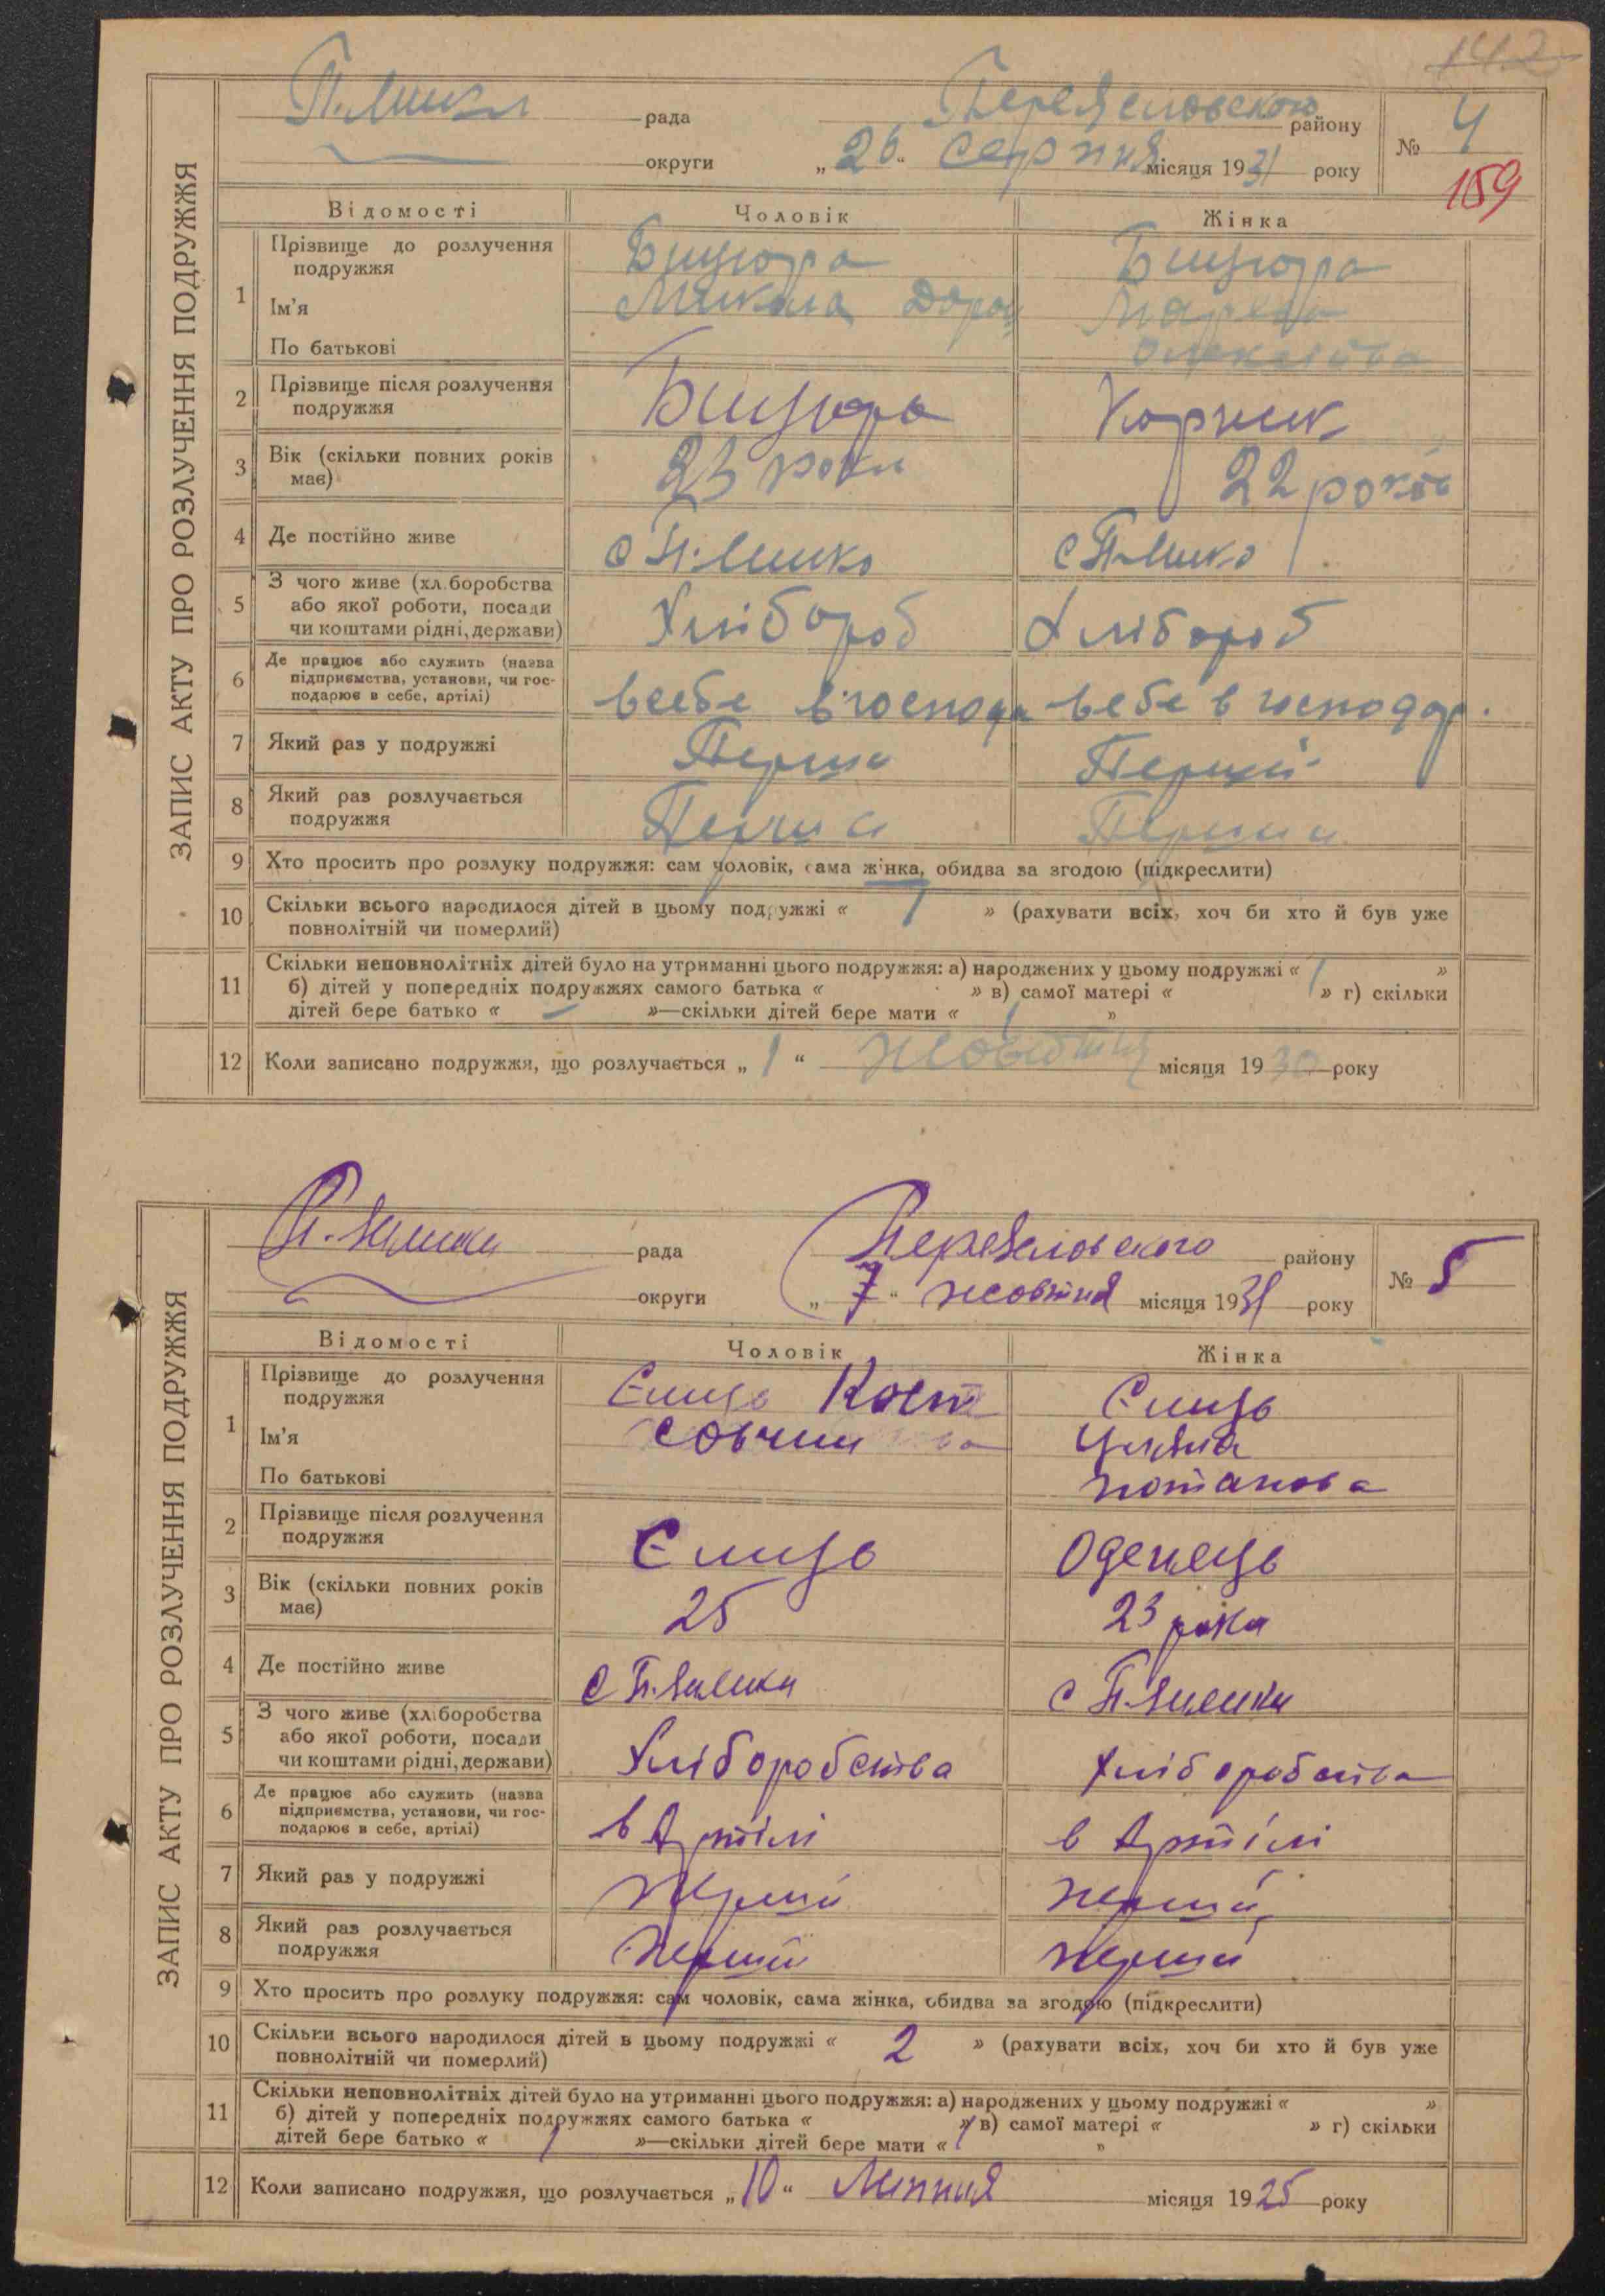 142
ЗАПИС АКТУ ПРО РОЗЛУЧЕННЯ ПОДРУЖЖЯ
рада Переяславского району № 4
округи „26“ серпня місяця 1931 року
159
Відомості Чоловік Жінка
1 Прізвище до розлучення подружжя Бицюра Бицюра
Ім'я Микола Марена
По батькові
2 Прізвище після розлучення подружжя Бицюра Корник
3 Вік (скільки повних років має) 23 роки 22 років
4 Де постійно живе
5 З чого живе (хліборобства або якої роботи, посади чи коштами рідні, держави) Хлібороб Хлібороб
6 Де працює або служить (назва підприємства, установи, чи господарює в себе, артілі) всебе в господар вебе в господар.
7 Який раз у подружжі Перши Перший
8 Який раз розлучається подружжя Перши Перши
9 Хто просить про розлуку подружжя: сам чоловік, сама жінка, обидва за згодою (підкреслити)
10 Скільки всього народилося дітей в цьому подружжі « 1 » (рахувати всіх, хоч би хто й був уже
повнолітній чи померлий)
11 Скільки неповнолітніх дітей було на утриманні цього подружжя: а) народжених у цьому подружжі « 1 »
б) дітей у попередніх подружжях самого батька « » в) самої матері « » г) скільки
дітей бере батько « – »—скільки дітей бере мати « 1 »
12 Коли записано подружжя, що розлучається „1“ жовтня місяця 1930 року
ЗАПИС АКТУ ПРО РОЗЛУЧЕННЯ ПОДРУЖЖЯ
рада Переяславского району № 5
округи „7“ жовтня місяця 1931 року
Відомості Чоловік Жінка
1 Прізвище до розлучення подружжя Єлиць Кост Єлиць
Ім'я Уляна
По батькові Потапова
2 Прізвище після розлучення подружжя Єлиць Оденець
3 Вік (скільки повних років має) 25 23 роки
4 Де постійно живе
5 З чого живе (хліборобства або якої роботи, посади чи коштами рідні, держави) Хліборобства Хліборобства
6 Де працює або служить (назва підприємства, установи, чи господарює в себе, артілі) в Артілі в Артілі
7 Який раз у подружжі Перший Перший
8 Який раз розлучається подружжя Перший Перший
9 Хто просить про розлуку подружжя: сам чоловік, сама жінка, обидва за згодою (підкреслити)
10 Скільки всього народилося дітей в цьому подружжі « 2 » (рахувати всіх, хоч би хто й був уже
повнолітній чи померлий)
11 Скільки неповнолітніх дітей було на утриманні цього подружжя: а) народжених у цьому подружжі « »
б) дітей у попередніх подружжях самого батька « » в) самої матері « » г) скільки
дітей бере батько « 1 »—скільки дітей бере мати « 1 »
12 Коли записано подружжя, що розлучається „10“ Липня місяця 1925 року